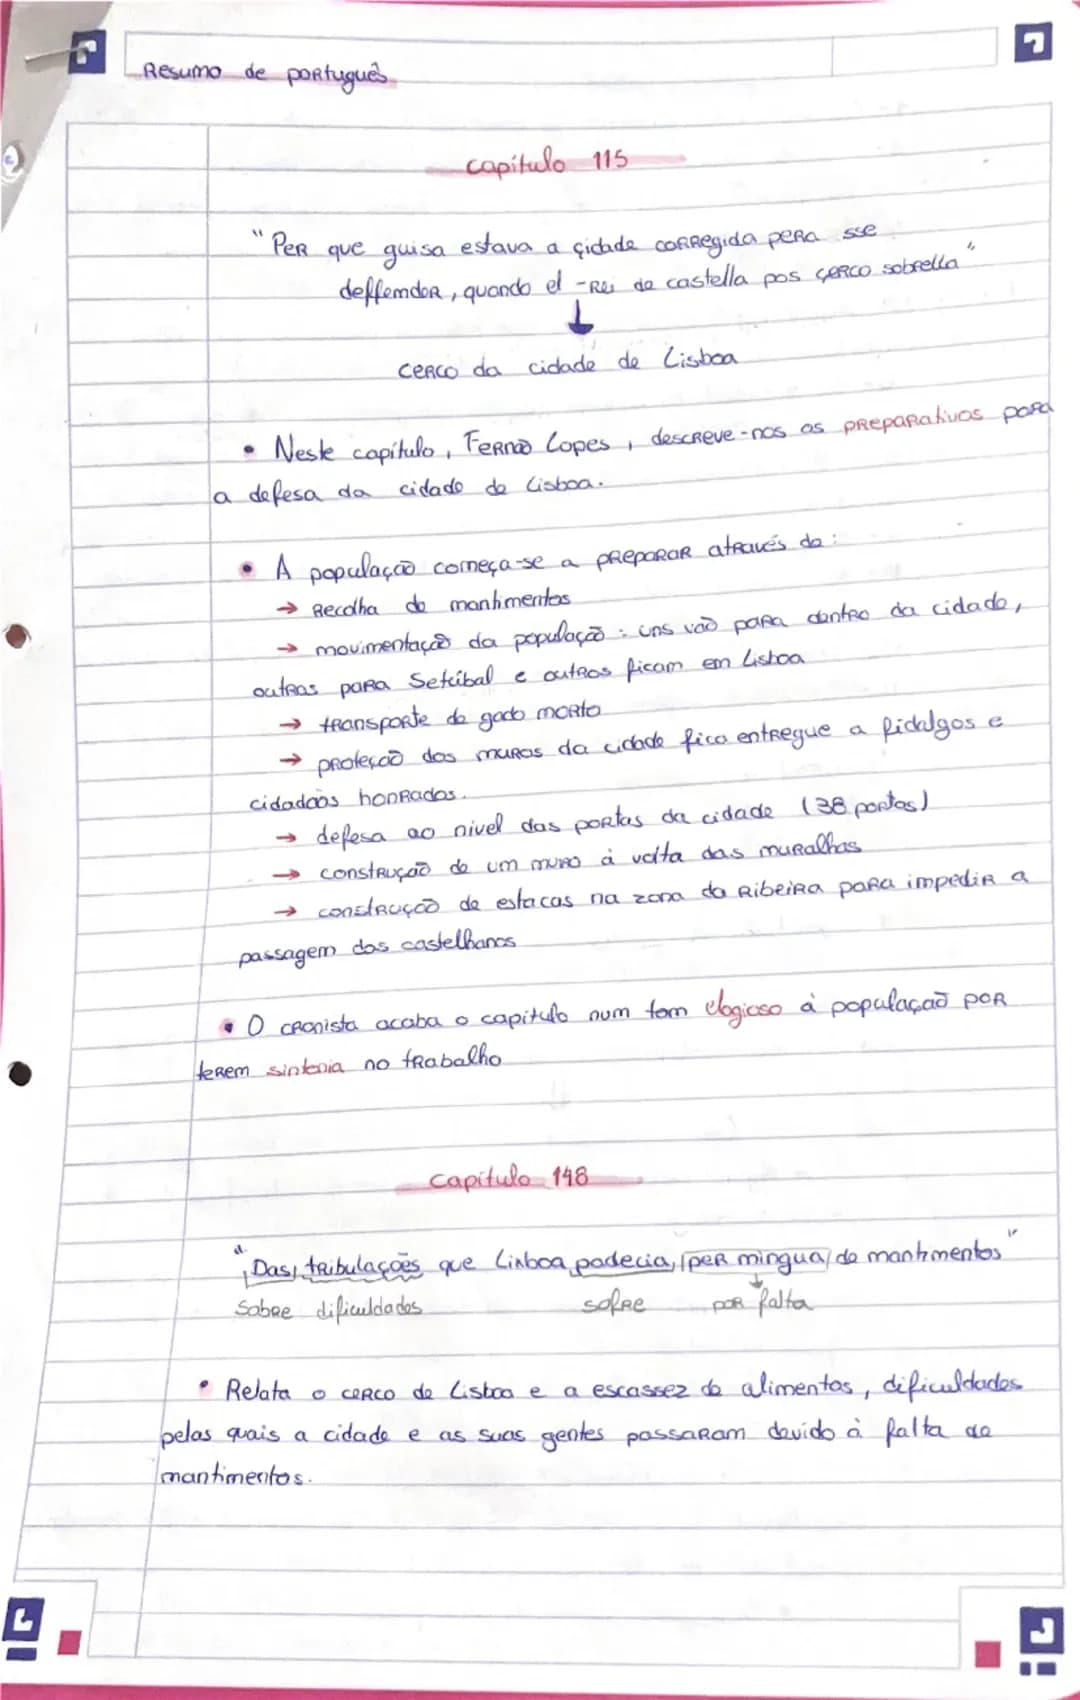 Resumo de português
capítulo 115
"Per que guisa estava a çidade corregida pera sse
deffemder, quando el -Rei de castella pos çerco sobrella"
cerco da cidade de Lisboa
• Neste capítulo, Fernão Lopes, descreve-nos os preparativos para
a defesa da cidade de Lisboa.
• A população começa-se a preparar através de:
→ Recolha de mantimentos
→ movimentação da população: uns vão para dentro da cidade,
outros para Setúbal e outros ficam em Lisboa
→ transporte de gado morto
→ proteção dos muros da cidade fica entregue a fidalgos e
cidadãos honrados.
→ defesa ao nivel das portas da cidade (38 portas)
→ construção de um muro à volta das muralhas
→ construção de estacas na zona da Ribeira para impedir a
passagem dos castelhanos
• O cronista acaba o capitulo num tom elogioso à população por
terem sintonia no trabalho
capítulo 148
"Das tribulações que Lixboa padecia per mingua de mantimentos"
Sobre dificuldades sofre por falta
• Relata o cerco de Lisboa e a escassez de alimentos, dificuldades
pelas quais a cidade e as suas gentes passaram devido à falta de
mantimentos.